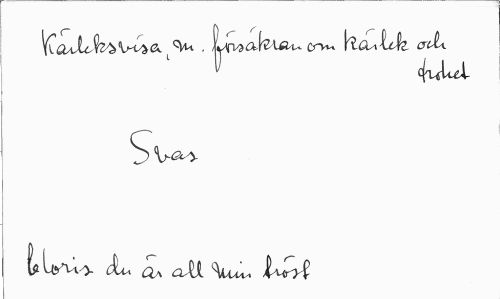 Kärleksvisa, m. försäkran om kärlek och
trohet
Svas
Cloris du är all min tröst